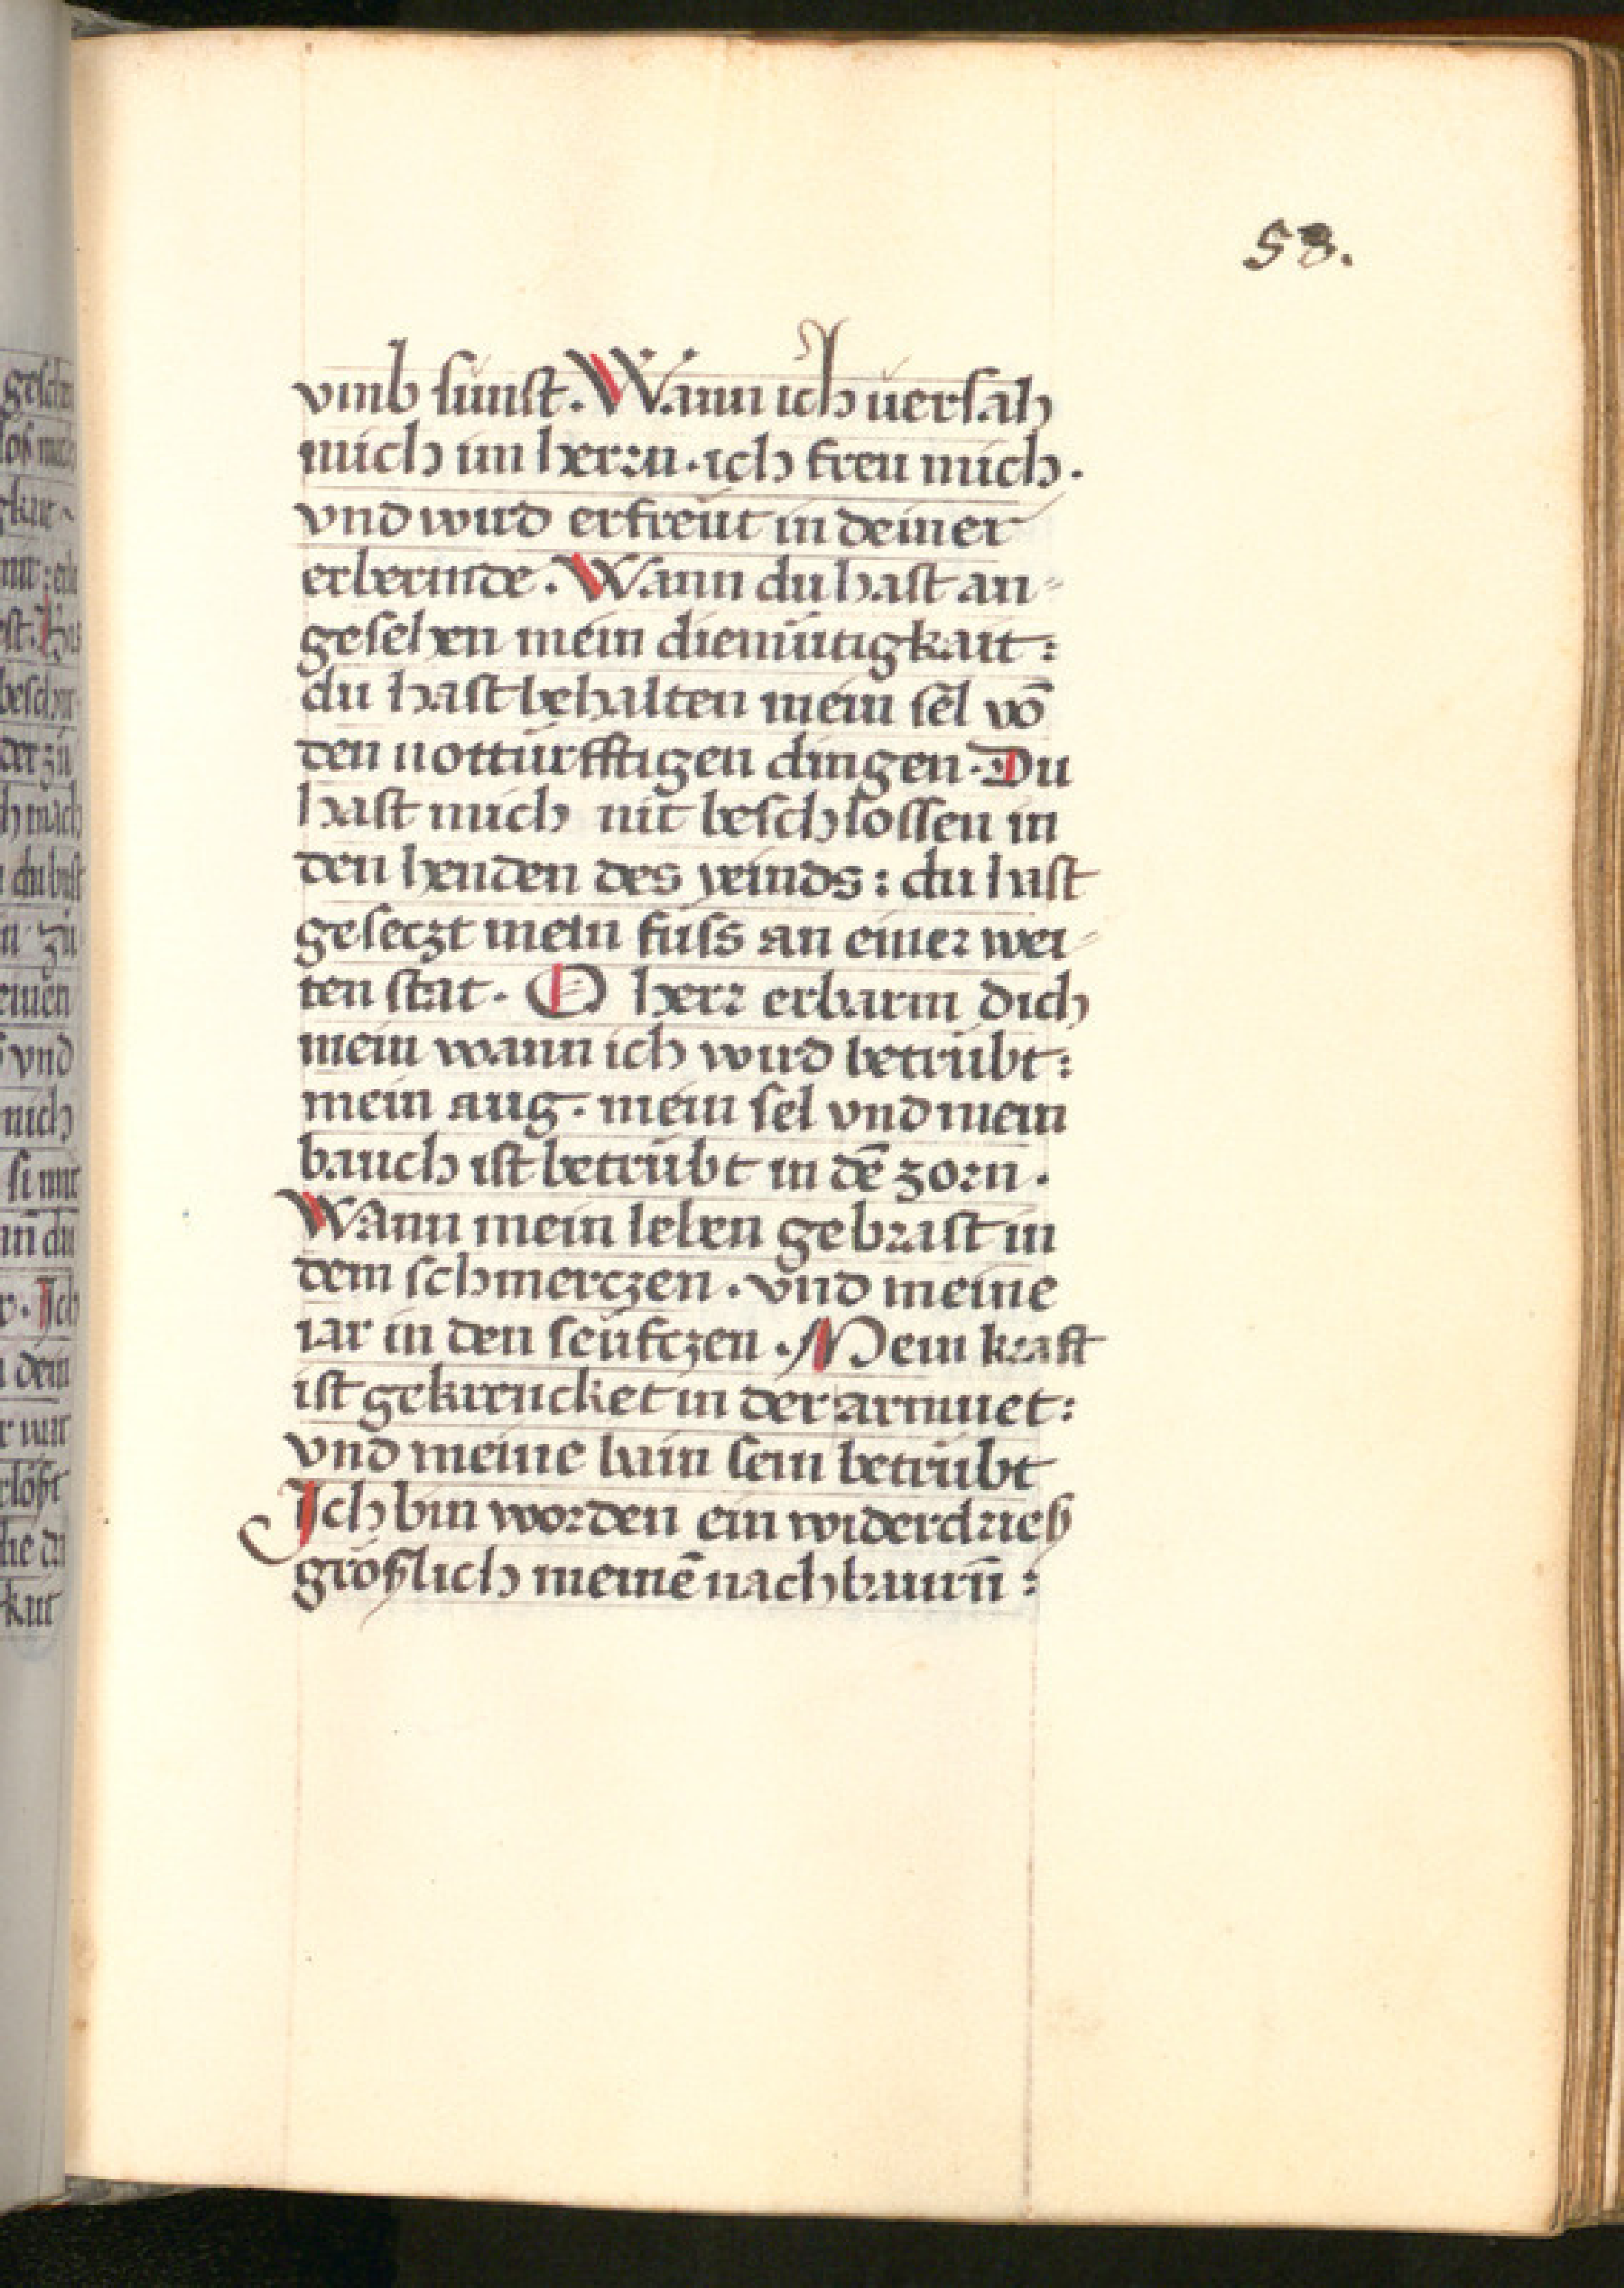 53.
vmb sunst. Wann ich versah
mich im herrn. ich freu mich.
vnd wird erfreüt in deiner
erbermde. Wann du hast an-
gesehen mein diemütigkait:
du hast behalten mein sel võ
den notturfftigen dingen. Du
hast mich nit beschlossen in
den henden des veinds: du hast
gesetzt mein füss an einer wei-
ten stat. O herr erbarm dich
mein wann ich wird betrübt:
mein aug. mein sel vnd mein
bauch ist betrübt in dē zorn.
Wann mein leben gebrast in
dem schmerczen. vnd meine
iar in den seüfczen. Mein krafft
ist gekrencket in der armuet:
vnd meine bain sein betrübt
Ich bin worden ein widerdrieß
größlich meinē nachbaurn̄: